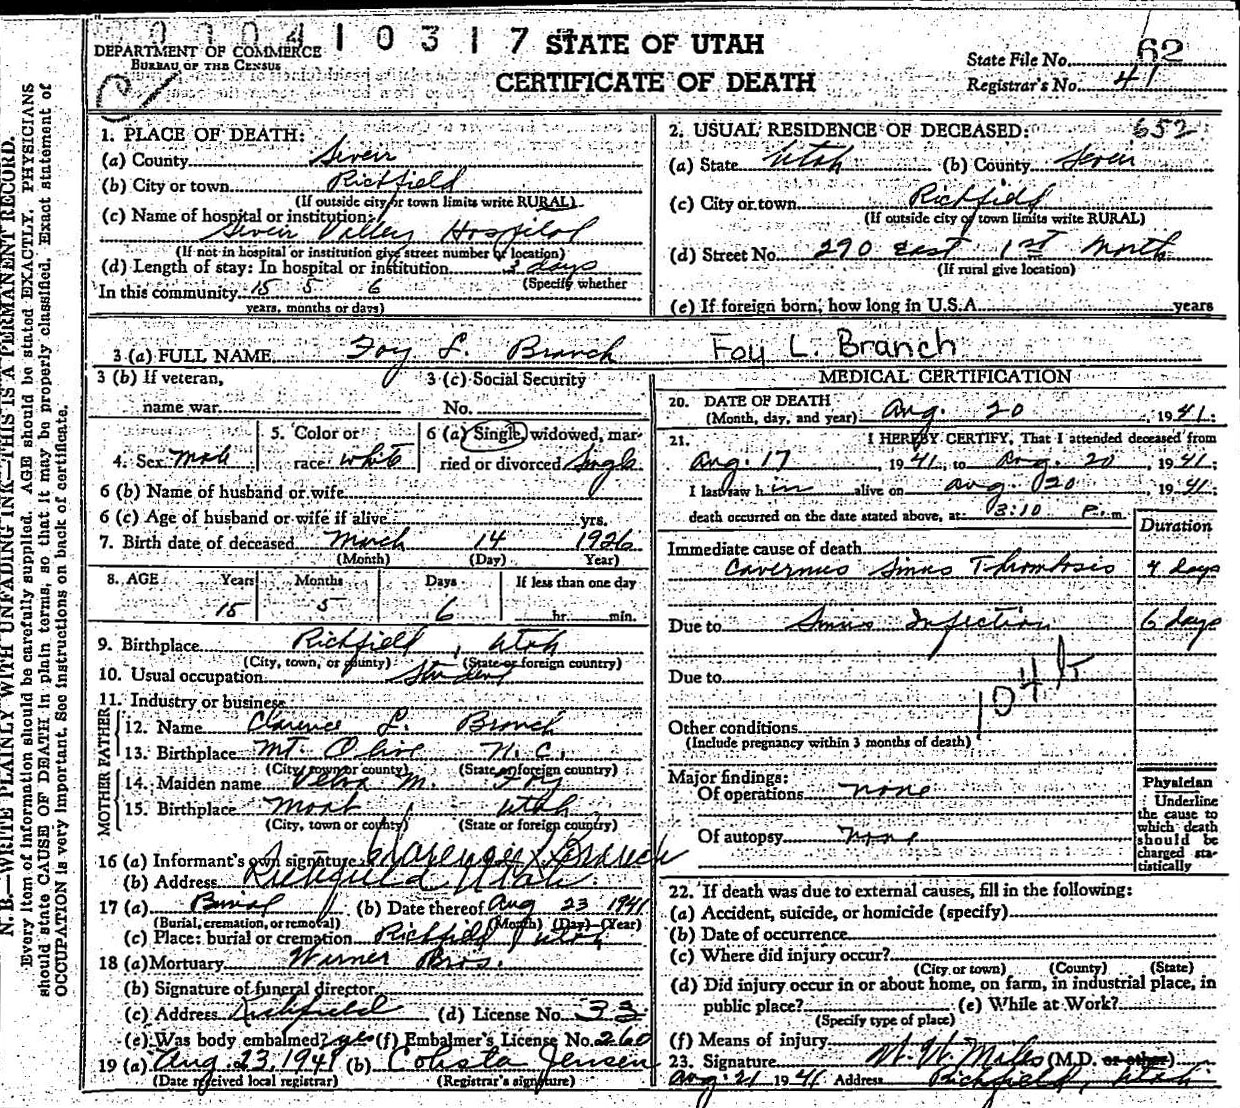 0004 1 0 3 1 7
STATE OF UTAH
CERTIFICATE OF DEATH
DEPARTMENT OF COMMERCE
BUREAU OF THE CENSUS
State File No. 62
Registrar's No. 41
N. B.—WRITE PLAINLY WITH UNFADING INK—THIS IS A PERMANENT RECORD.
Every item of information should be carefully supplied. AGE should be stated EXACTLY. PHYSICIANS
should state CAUSE OF DEATH in plain terms, so that it may be properly classified. Exact statement of
OCCUPATION is very important. See instructions on back of certificate.
1. PLACE OF DEATH:
(a) County Sevier
(b) City or town Richfield
(If outside city or town limits write RURAL)
(c) Name of hospital or institution:
Sevier Valley Hospital
(If not in hospital or institution give street number or location)
(d) Length of stay: In hospital or institution 3 days
(Specify whether
In this community 15 5 6
years, months or days)
2. USUAL RESIDENCE OF DECEASED: 652
(a) State Utah (b) County Sevier
(c) City or town Richfield
(If outside city or town limits write RURAL)
(d) Street No. 290 east 1st North
(If rural give location)
(e) If foreign born, how long in U.S.A. years
3 (a) FULL NAME Foy L. Branch Foy L. Branch
3 (b) If veteran,
name war
3 (c) Social Security
No.
4. Sex Male
5. Color or
race White
6 (a) Single, widowed, mar-
ried or divorced Single
6 (b) Name of husband or wife
6 (c) Age of husband or wife if alive yrs.
7. Birth date of deceased March 14 1926
(Month) (Day) Year)
8. AGE Years Months Days If less than one day
15 5 6 hr. min.
9. Birthplace Richfield, Utah
(City, town, or county) (State or foreign country)
10. Usual occupation Student
11. Industry or business
FATHER
12. Name Clarence L. Branch
13. Birthplace Mt. Olive N. C.
(City, town or county) (State or foreign country)
MOTHER
14. Maiden name Velva M. Foy
15. Birthplace Moab, Utah
(City, town or county) (State or foreign country)
16 (a) Informant's own signature Clarence L. Branch
(b) Address Richfield Utah.
17 (a) Burial (b) Date thereof Aug 23 1941
(Burial, cremation, or removal) (Month) (Day) (Year)
(c) Place: burial or cremation Richfield, Utah
18 (a) Mortuary Warner Bros.
(b) Signature of funeral director
(c) Address Richfield (d) License No. 33
(e) Was body embalmed? yes (f) Embalmer's License No. 260
19 (a) Aug. 23, 1941 (b) Jensen
(Date received local registrar) (Registrar's signature)
MEDICAL CERTIFICATION
20. DATE OF DEATH
(Month, day, and year) Aug. 20, 1941.
21. I HEREBY CERTIFY, That I attended deceased from
Aug. 17, 1941, to Aug. 20 1941;
I last saw him alive on Aug. 20 1941.
death occurred on the date stated above, at 3:10 P. m.
Duration
Immediate cause of death
Cavernus Sinus Thrombosis 4 days
Due to Sinus Infection 6 days
Due to
104 b
Other conditions
(Include pregnancy within 3 months of death)
Major findings:
Of operations none
Of autopsy none
Physician
Underline
the cause to
which death
should be
charged sta-
tistically
22. If death was due to external causes, fill in the following:
(a) Accident, suicide, or homicide (specify)
(b) Date of occurrence
(c) Where did injury occur?
(City or town) (County) (State)
(d) Did injury occur in or about home, on farm, in industrial place, in
public place? (e) While at Work?
(Specify type of place)
(f) Means of injury
23. Signature (M.D. or other)
Aug. 21 1941 Address Richfield, Utah